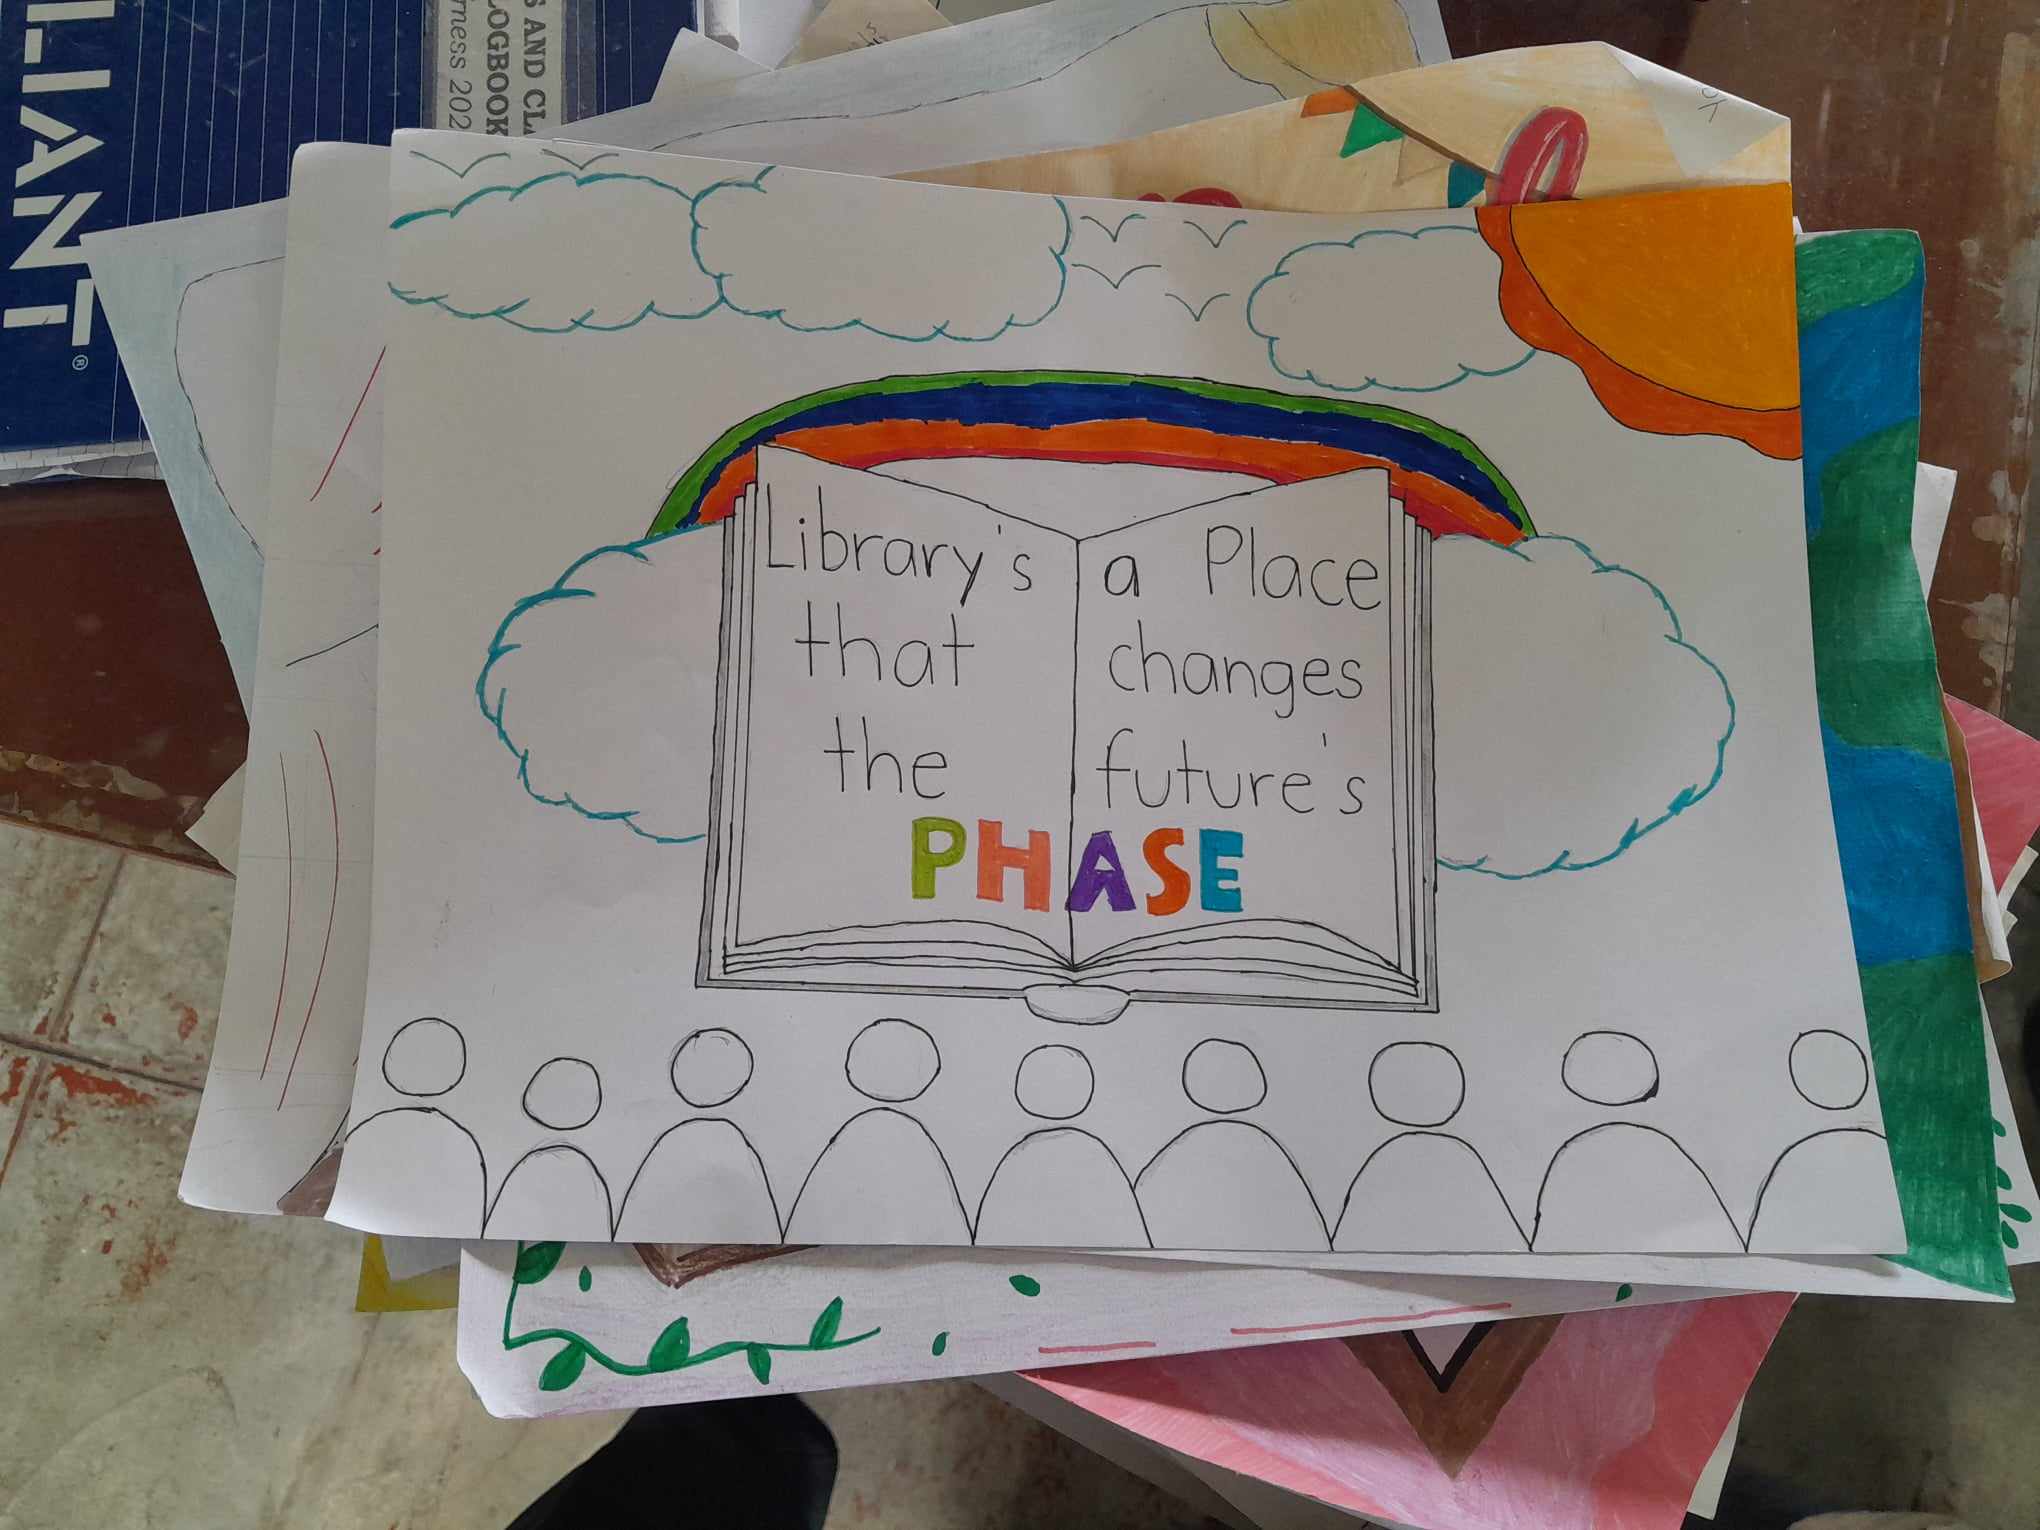 LIANT®
S AND CLA
LOGBOOK
rness 202
Library's a Place
that changes
the future's
PHASE